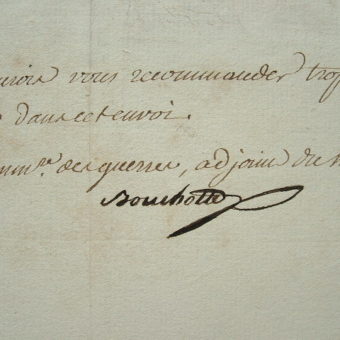 vous recommander trop
dans cet envoi.
mm.re des guerres, adjoint du
Bouchotte